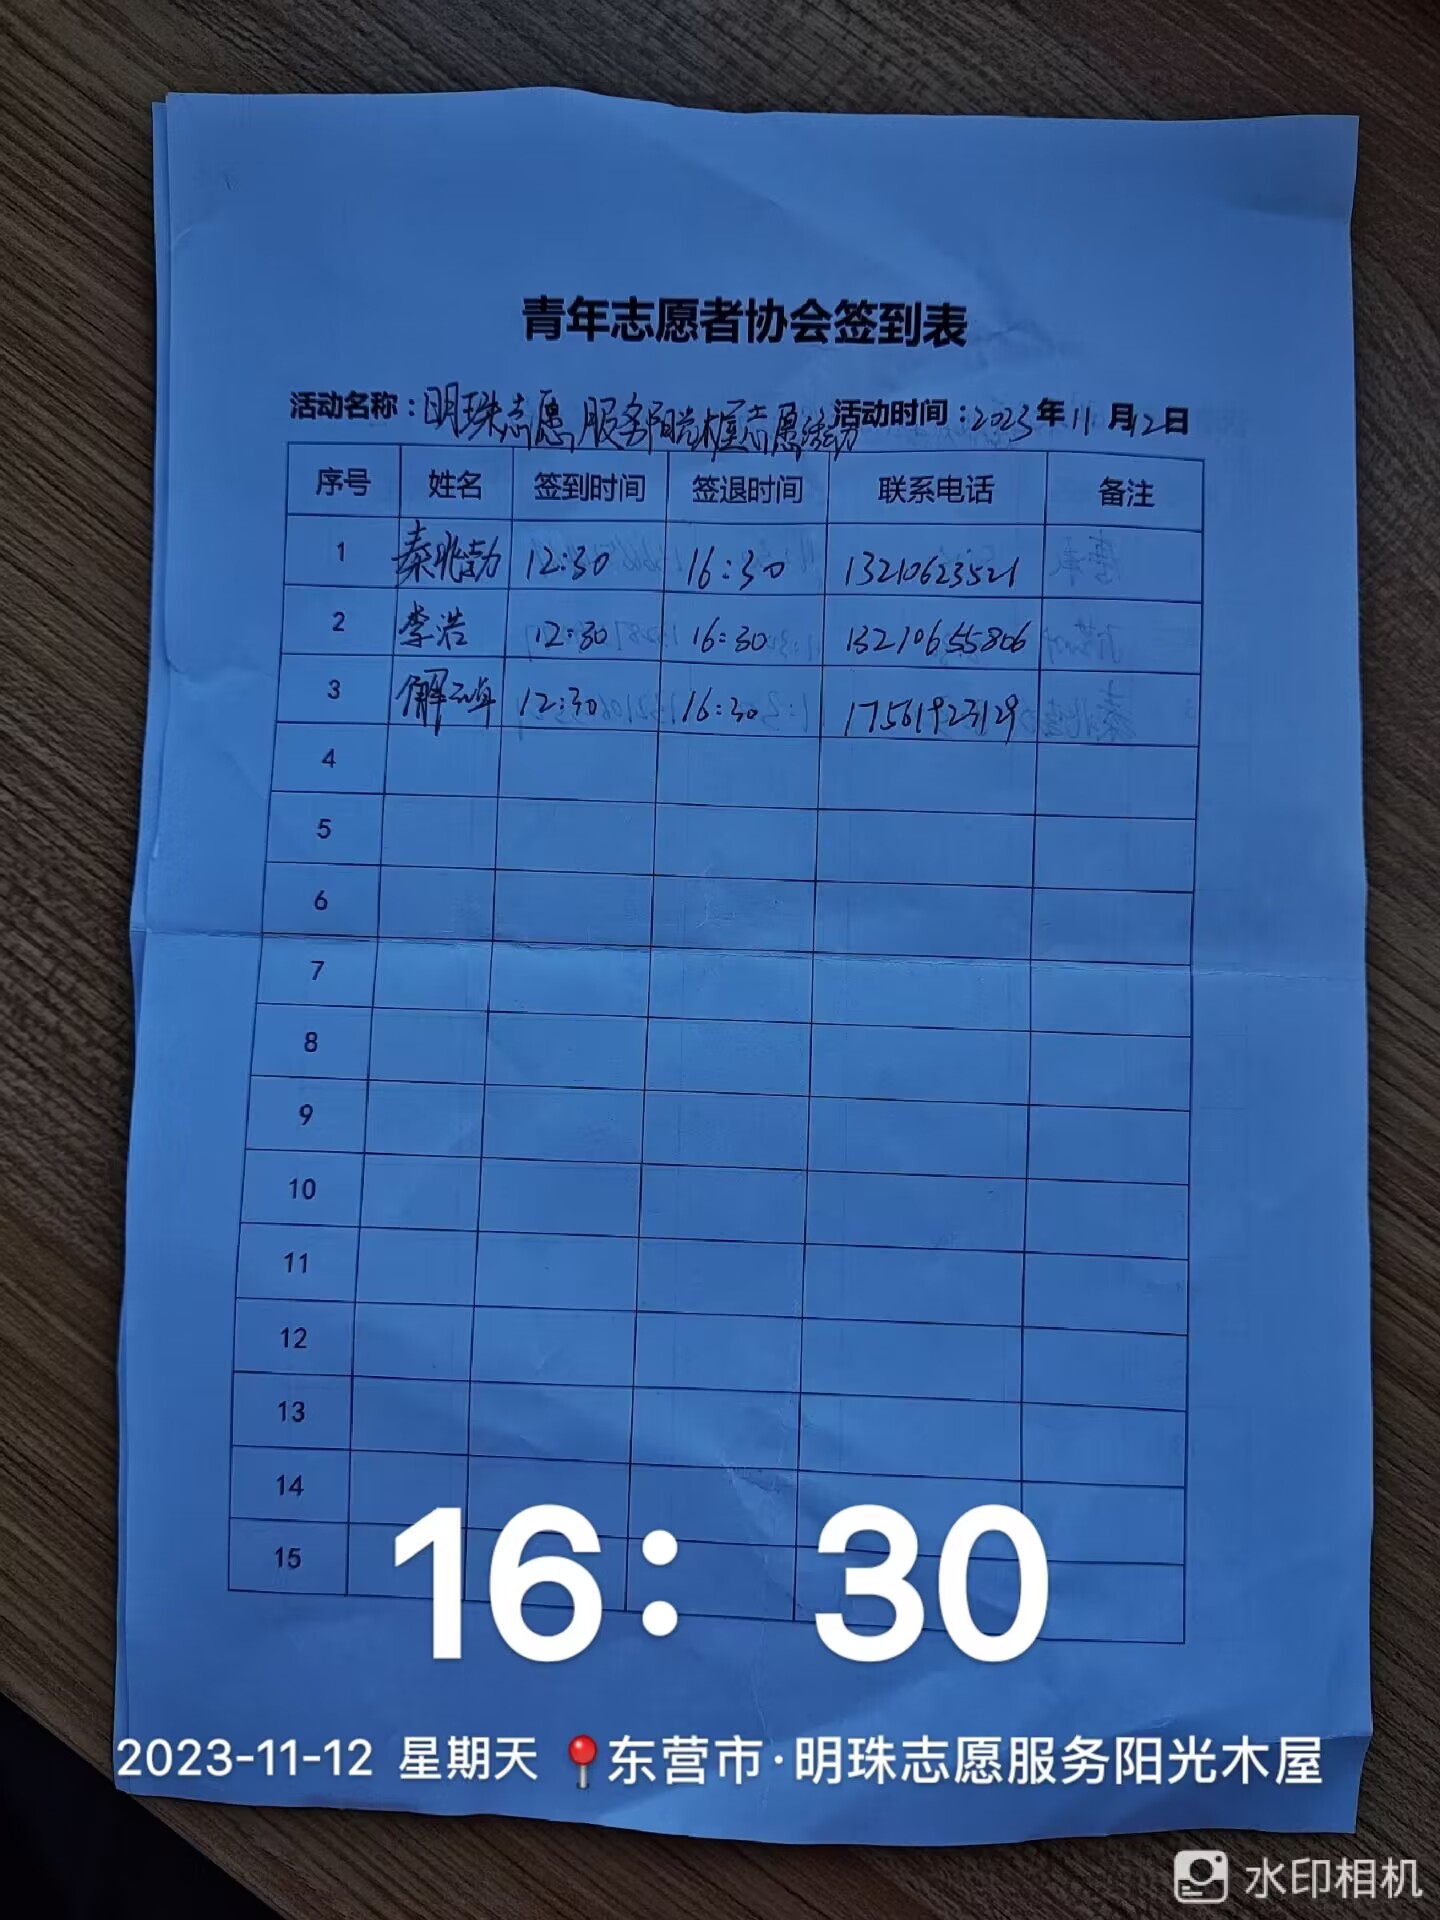 青年志愿者协会签到表
活动名称：明珠志愿服务阳光木屋志愿活动 活动时间：2023年11月12日
序号 姓名 签到时间 签退时间 联系电话 备注
1 秦兆勃 12:30 16:30 13210623521
2 李浩 12:30 16:30 13210655806
3 解 12:30 16:30 17561923129
4
5
6
7
8
9
10
11
12
13
14
15
16：30
2023-11-12 星期天 📍东营市·明珠志愿服务阳光木屋
水印相机